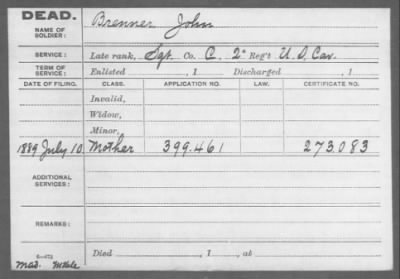 DEAD.
NAME OF SOLDIER: Brenner John
SERVICE: Late rank, Sgt. Co. C, 2" Reg't U.S. Cav.
TERM OF SERVICE: Enlisted , 1 Discharged , 1
DATE OF FILING. CLASS. APPLICATION NO. LAW. CERTIFICATE NO.
Invalid,
Widow,
Minor,
1889 July 10. Mother 399.461 273.083
ADDITIONAL SERVICES:
REMARKS:
Died , 1 , at